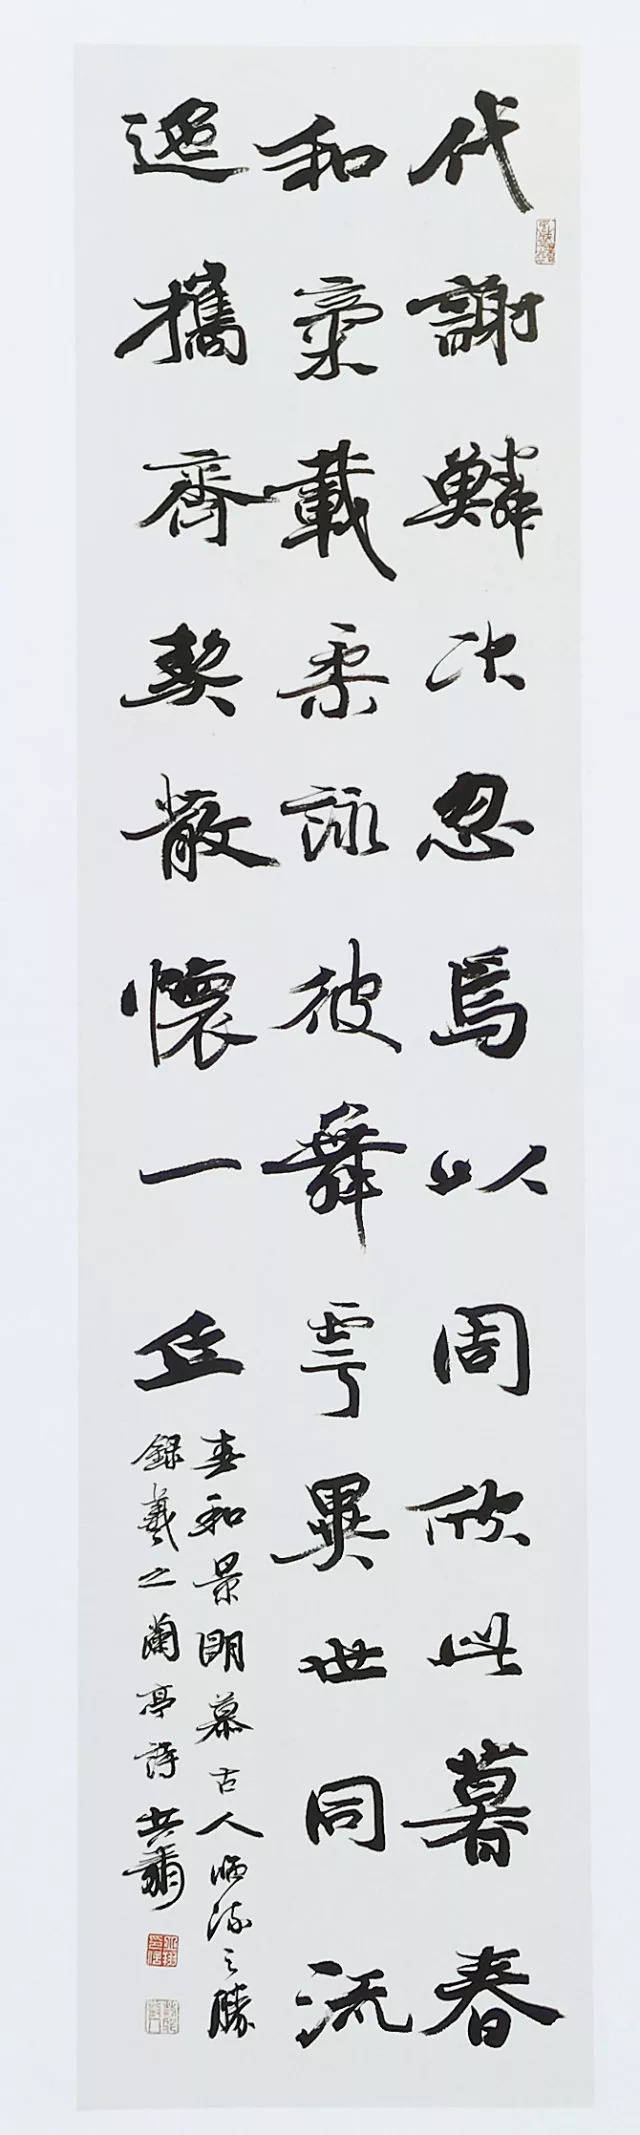 代謝鱗次忽焉以周欣此暮春
和氣載柔詠彼舞雩異世同流
迺攜齊契散懷一丘
春和景明慕古人臨流之勝
錄羲之蘭亭詩